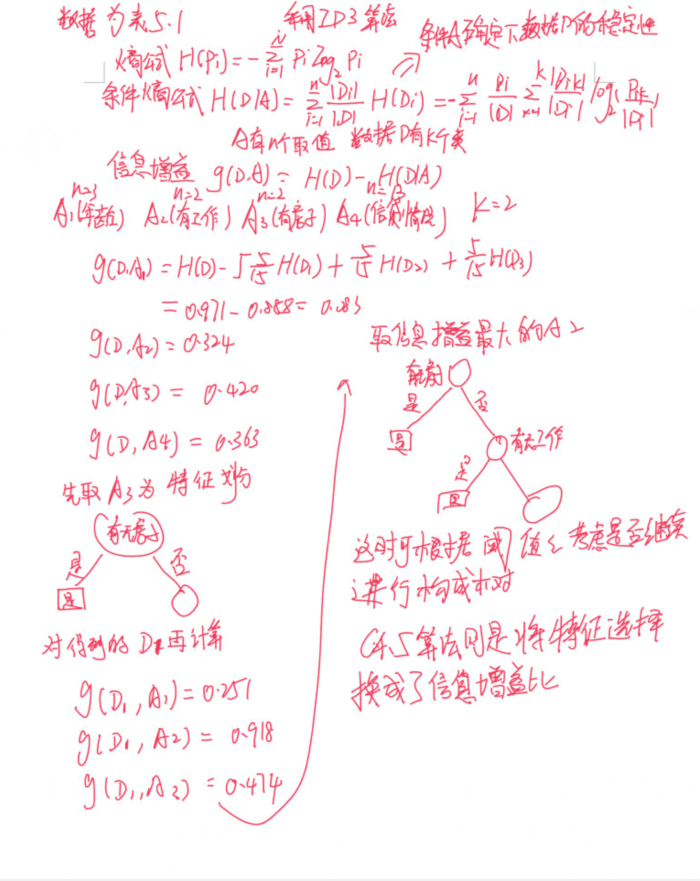 数据为表5.1 利用ID3算法
条件A确定下数据D的稳定性
熵公式 H(Pi)=-∑_{i=1}^{N} Pi log₂ Pi
条件熵公式 H(D|A)=∑_{i=1}^{n} |Di|/|D| H(Di)=-∑_{i=1}^{n} Di/|D| ∑_{k=1}^{K} |Dik|/|Di| log₂ Dik/|Di|
A有n个取值 数据D有K个类
信息增益 g(D,A)=H(D)-H(D|A)
n=3 n=2 n=2 n=3
A₁(年龄) A₂(有工作) A₃(有房子) A₄(信贷情况) K=2
g(D,A₁)=H(D)-[5/15 H(D₁)+5/15 H(D₂)+5/15 H(D₃)
=0.971-0.888=0.083
g(D,A₂)=0.324
g(D,A3)=0.420
g(D,A4)=0.363
先取A₃为特征划分
有无房子
是 否
是
对得到的D₁再计算
g(D₁,A₁)=0.251
g(D₁,A2)=0.918
g(D₁,A3)=0.474
取信息增益最大的A2
有无房
是 否
是 有无工作
是
是
这时可根据阈值ε考虑是否继续
进行构成树
C4.5算法则是将特征选择
换成了信息增益比